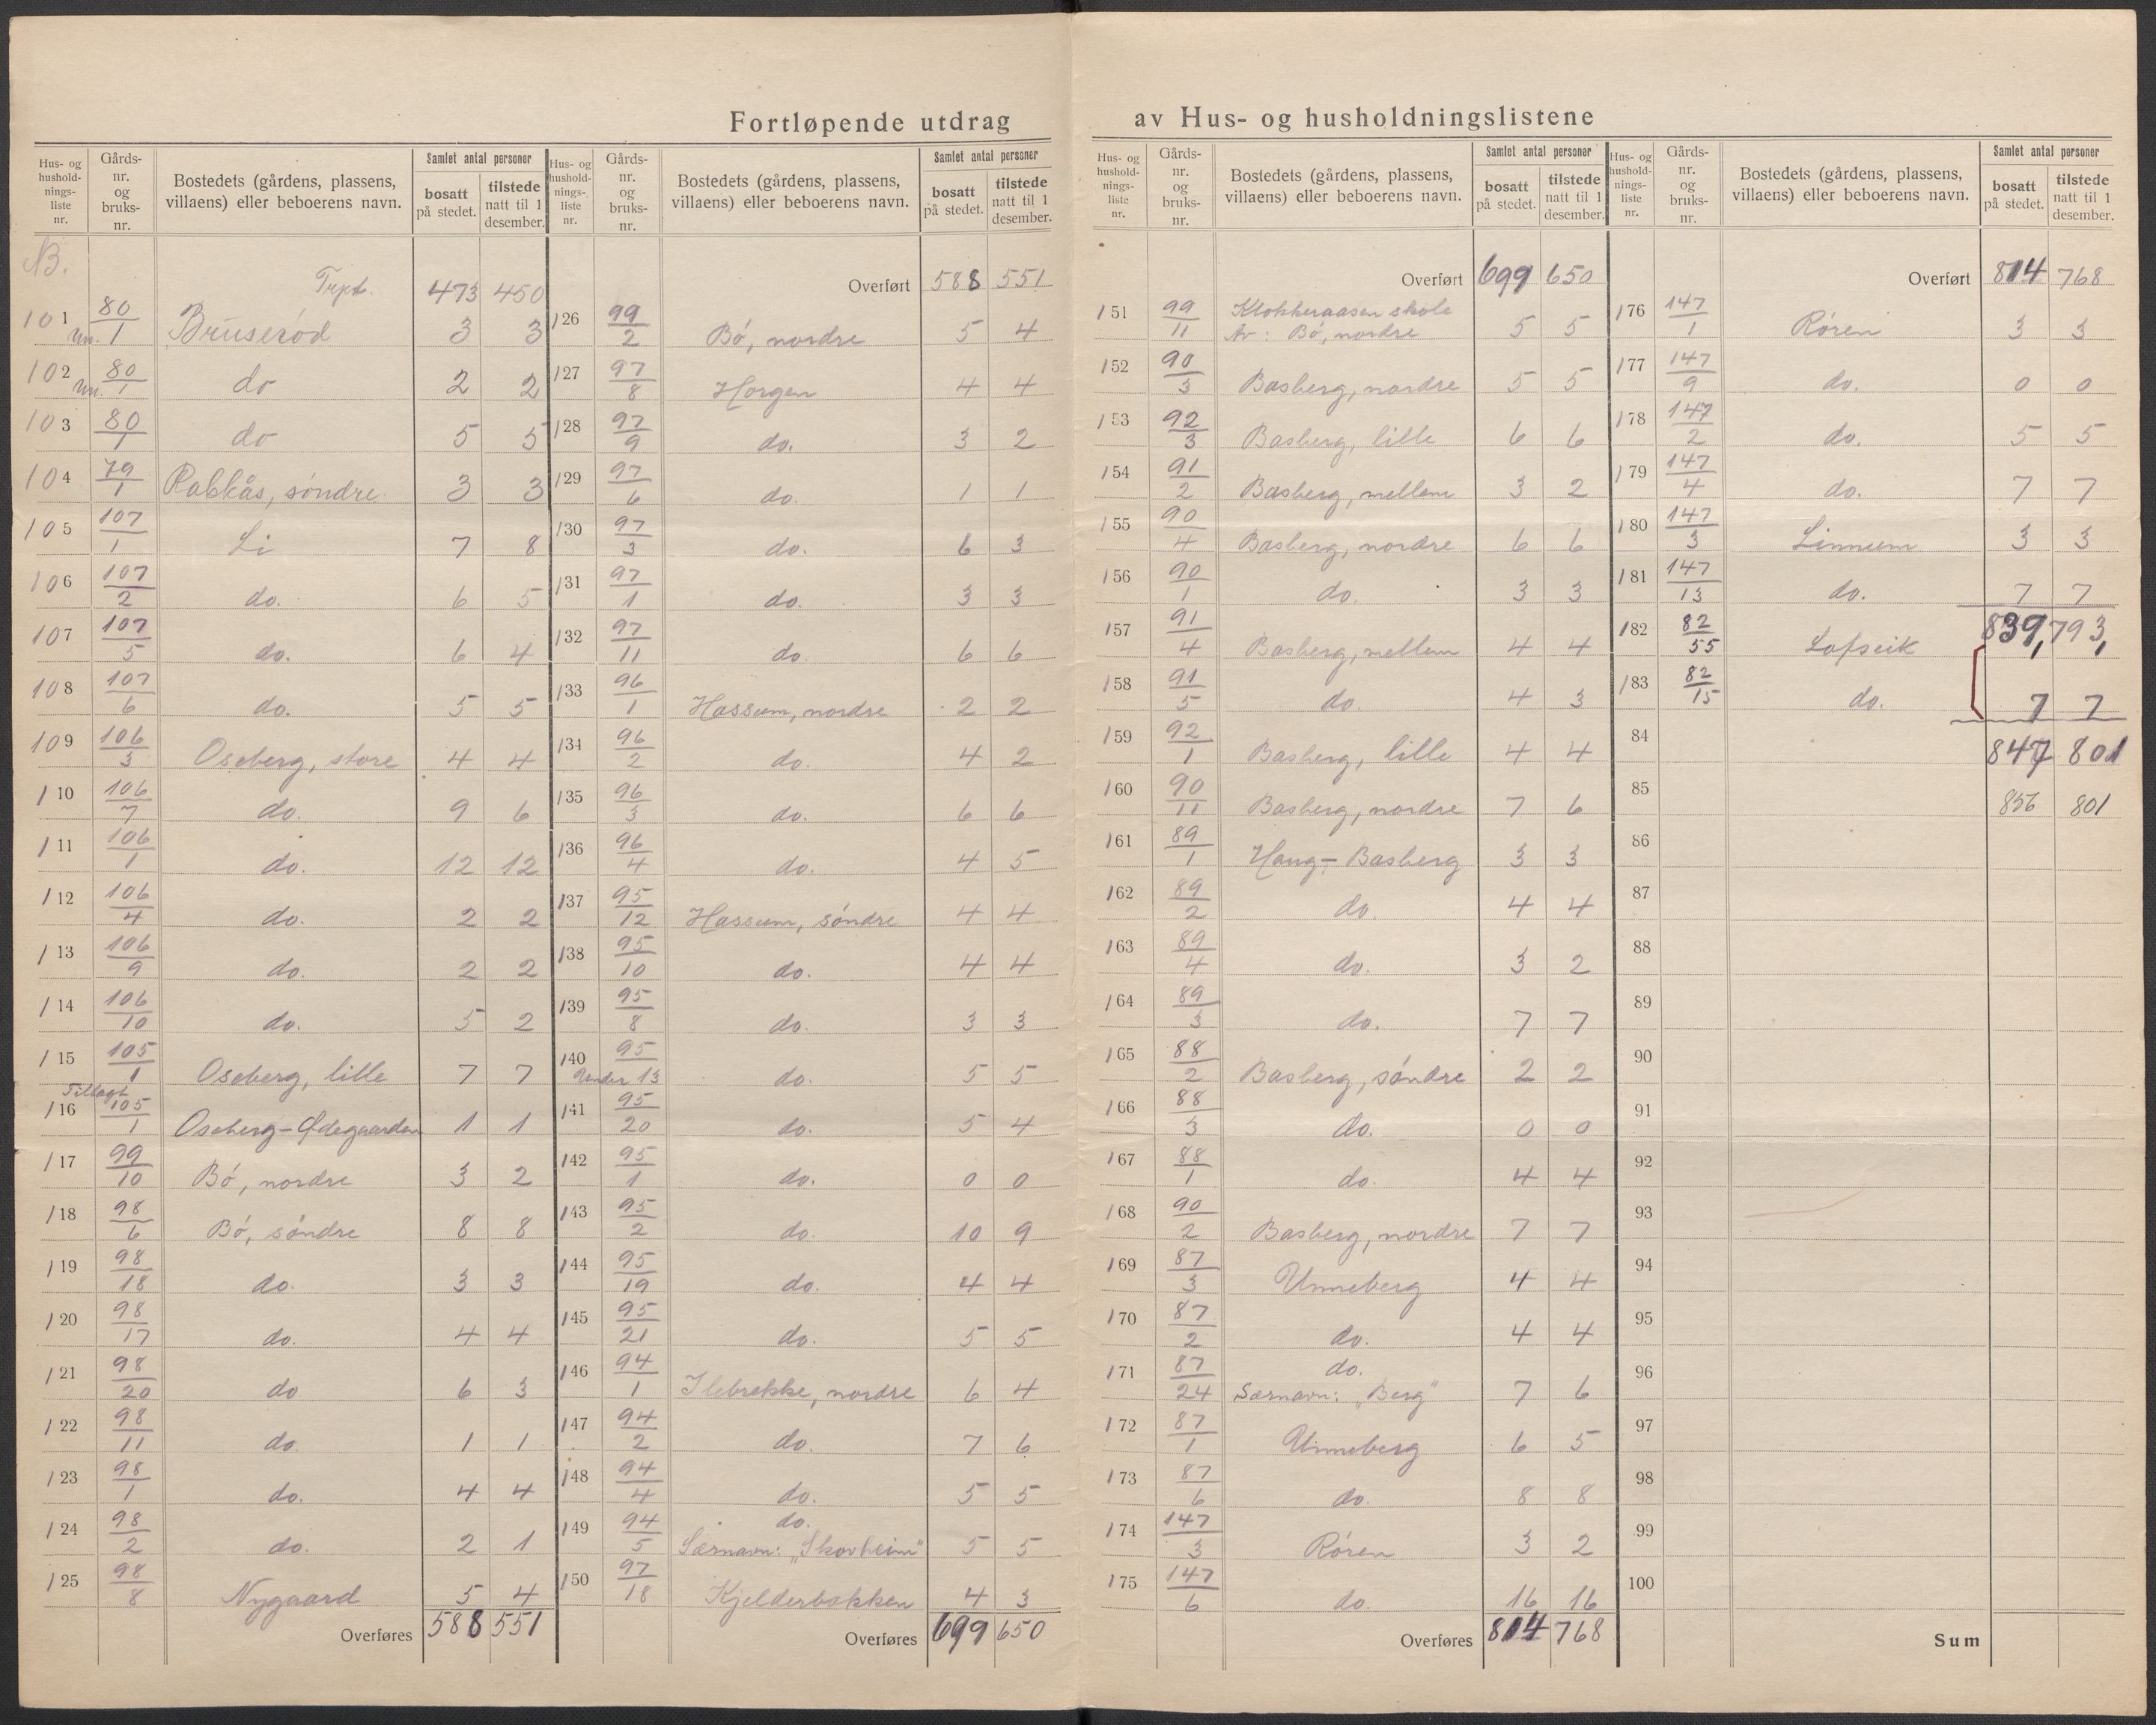 Fortløpende utdrag av Hus- og husholdningslistene
Hus- og husholdnings-liste nr. Gårds-nr. og bruks-nr. Bostedets (gårdens, plassens, villaens) eller beboerens navn. Samlet antal personer bosatt på stedet. tilstede natt til 1 desember.
B.
473 450
101 80/1 Bruserød 3 3
102 80/1 do 2 2
103 80/1 do 5 5
104 79/1 Rakkås, søndre 3 3
105 107/1 Li 7 8
106 107/2 do. 6 5
107 107/5 do. 6 4
108 107/6 do. 5 5
109 106/3 Oseberg, store 4 4
110 106/7 do. 9 6
111 106/1 do. 12 12
112 106/4 do. 2 2
113 106/9 do. 2 2
114 106/10 do. 5 2
115 105/1 Oseberg, lille 7 7
Tillagt
116 105/1 Oseberg-Ødegaarden 1 1
117 99/10 Bø, nordre 3 2
118 98/6 Bø, søndre 8 8
119 98/18 do. 3 3
120 98/17 do. 4 4
121 98/20 do 6 3
122 98/11 do. 1 1
123 98/1 do. 4 4
124 98/2 do. 2 1
125 98/8 Nygaard 5 4
Overføres 588 551
Hus- og husholdnings-liste nr. Gårds-nr. og bruks-nr. Bostedets (gårdens, plassens, villaens) eller beboerens navn. Samlet antal personer bosatt på stedet. tilstede natt til 1 desember.
Overført 588 551
126 99/2 Bø, nordre 5 4
127 97/8 Horgen 4 4
128 97/9 do. 3 2
129 97/6 do. 1 1
130 97/3 do. 6 3
131 97/1 do. 3 3
132 97/11 do. 6 6
133 96/1 Hassum, nordre 2 2
134 96/2 do. 4 2
135 96/3 do. 6 6
136 96/4 do. 4 5
137 95/12 Hassum, søndre 4 4
138 95/10 do. 4 4
139 95/8 do. 3 3
140 95/Under 13 do. 5 5
141 95/20 do. 5 4
142 95/1 do. 0 0
143 95/2 do. 10 9
144 95/19 do. 4 4
145 95/21 do. 5 5
146 94/1 Ilebrekke, nordre 6 4
147 94/2 do. 7 6
148 94/4 do. 5 5
149 94/5 do.
Særnavn: "Skovheim" 5 5
150 97/18 Kjelderbakken 4 3
Overføres 699 650
Hus- og husholdnings-liste nr. Gårds-nr. og bruks-nr. Bostedets (gårdens, plassens, villaens) eller beboerens navn. Samlet antal personer bosatt på stedet. tilstede natt til 1 desember.
Overført 699 650
151 99/11 Klokkeraasen skole
Av: Bø, nordre 5 5
152 90/3 Basberg, nordre 5 5
153 92/3 Basberg, lille 6 6
154 91/2 Basberg, mellem 3 2
155 90/4 Basberg, nordre 6 6
156 90/1 do. 3 3
157 91/4 Basberg, mellem 4 4
158 91/5 do. 4 3
159 92/1 Basberg, lille 4 4
160 90/11 Basberg, nordre 7 6
161 89/1 Haug-Basberg 3 3
162 89/2 do. 4 4
163 89/4 do. 3 2
164 89/3 do. 7 7
165 88/2 Basberg, søndre 2 2
166 88/3 do. 0 0
167 88/1 do. 4 4
168 90/2 Basberg, nordre 7 7
169 87/3 Unneberg 4 4
170 87/2 do. 4 4
171 87/24 do.
Særnavn: "Berg" 7 6
172 87/1 Unneberg 6 5
173 87/6 do. 8 8
174 147/3 Røren 3 2
175 147/6 do. 16 16
Overføres 814 768
Hus- og husholdnings-liste nr. Gårds-nr. og bruks-nr. Bostedets (gårdens, plassens, villaens) eller beboerens navn. Samlet antal personer bosatt på stedet. tilstede natt til 1 desember.
Overført 814 768
176 147/1 Røren 3 3
177 147/9 do. 0 0
178 147/2 do. 5 5
179 147/4 do. 7 7
180 147/3 Linnum 3 3
181 147/13 do. 7 7
839, 793,
182 82/55 Lofseik
183 82/15 do. 7 7
84 847 801
85 856 801
86
87
88
89
90
91
92
93
94
95
96
97
98
99
100
Sum